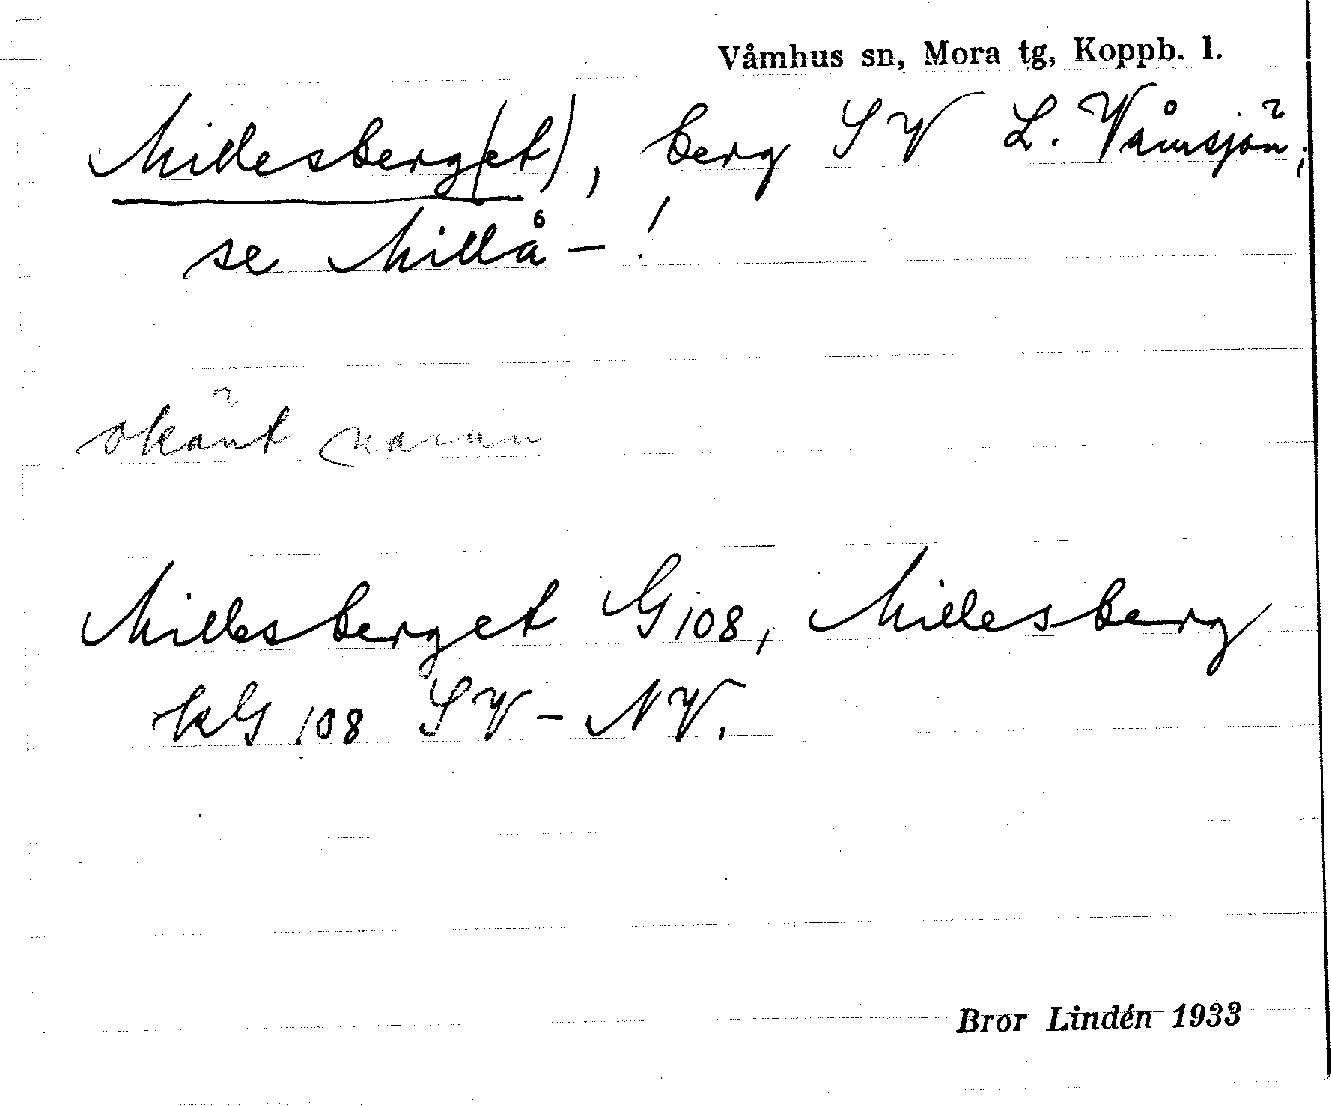 Våmhus sn, Mora tg, Koppb. l.
Millesberg(et), berg SV L. Våmsjön;
se Millå – !
okänt namn
Millesberget G 108, Millesberg
kG 108 SV – NV.
Bror Lindén 1933